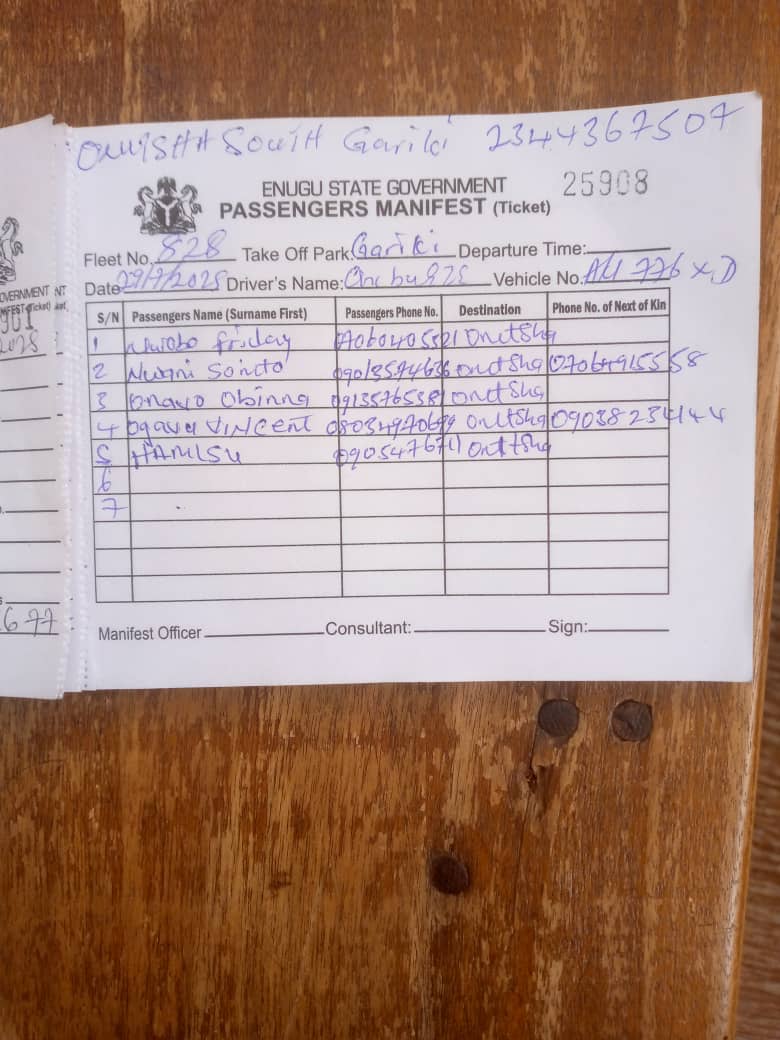 ONUISHA SOUTH Gariki 2344367507
ENUGU STATE GOVERNMENT 25908
PASSENGERS MANIFEST (Ticket)
Fleet No. 828 Take Off Park: Gariki Departure Time:
Date 29/7/2025 Driver's Name: Vehicle No. AU 776 XD
S/N Passengers Name (Surname First) Passengers Phone No. Destination Phone No. of Next of Kin
1 Nwobo friday 07060405521 Onitsha
2 Nwani Sonto 09013594636 Onitsha 07064915558
3 Onavo Obinna 09135765381 Onitsha
4 Ogavu VINCENT 08034970699 Onitsha 09038234144
5 HAMISU 09054767411 Onitsha
6
7
Manifest Officer Consultant: Sign:
677